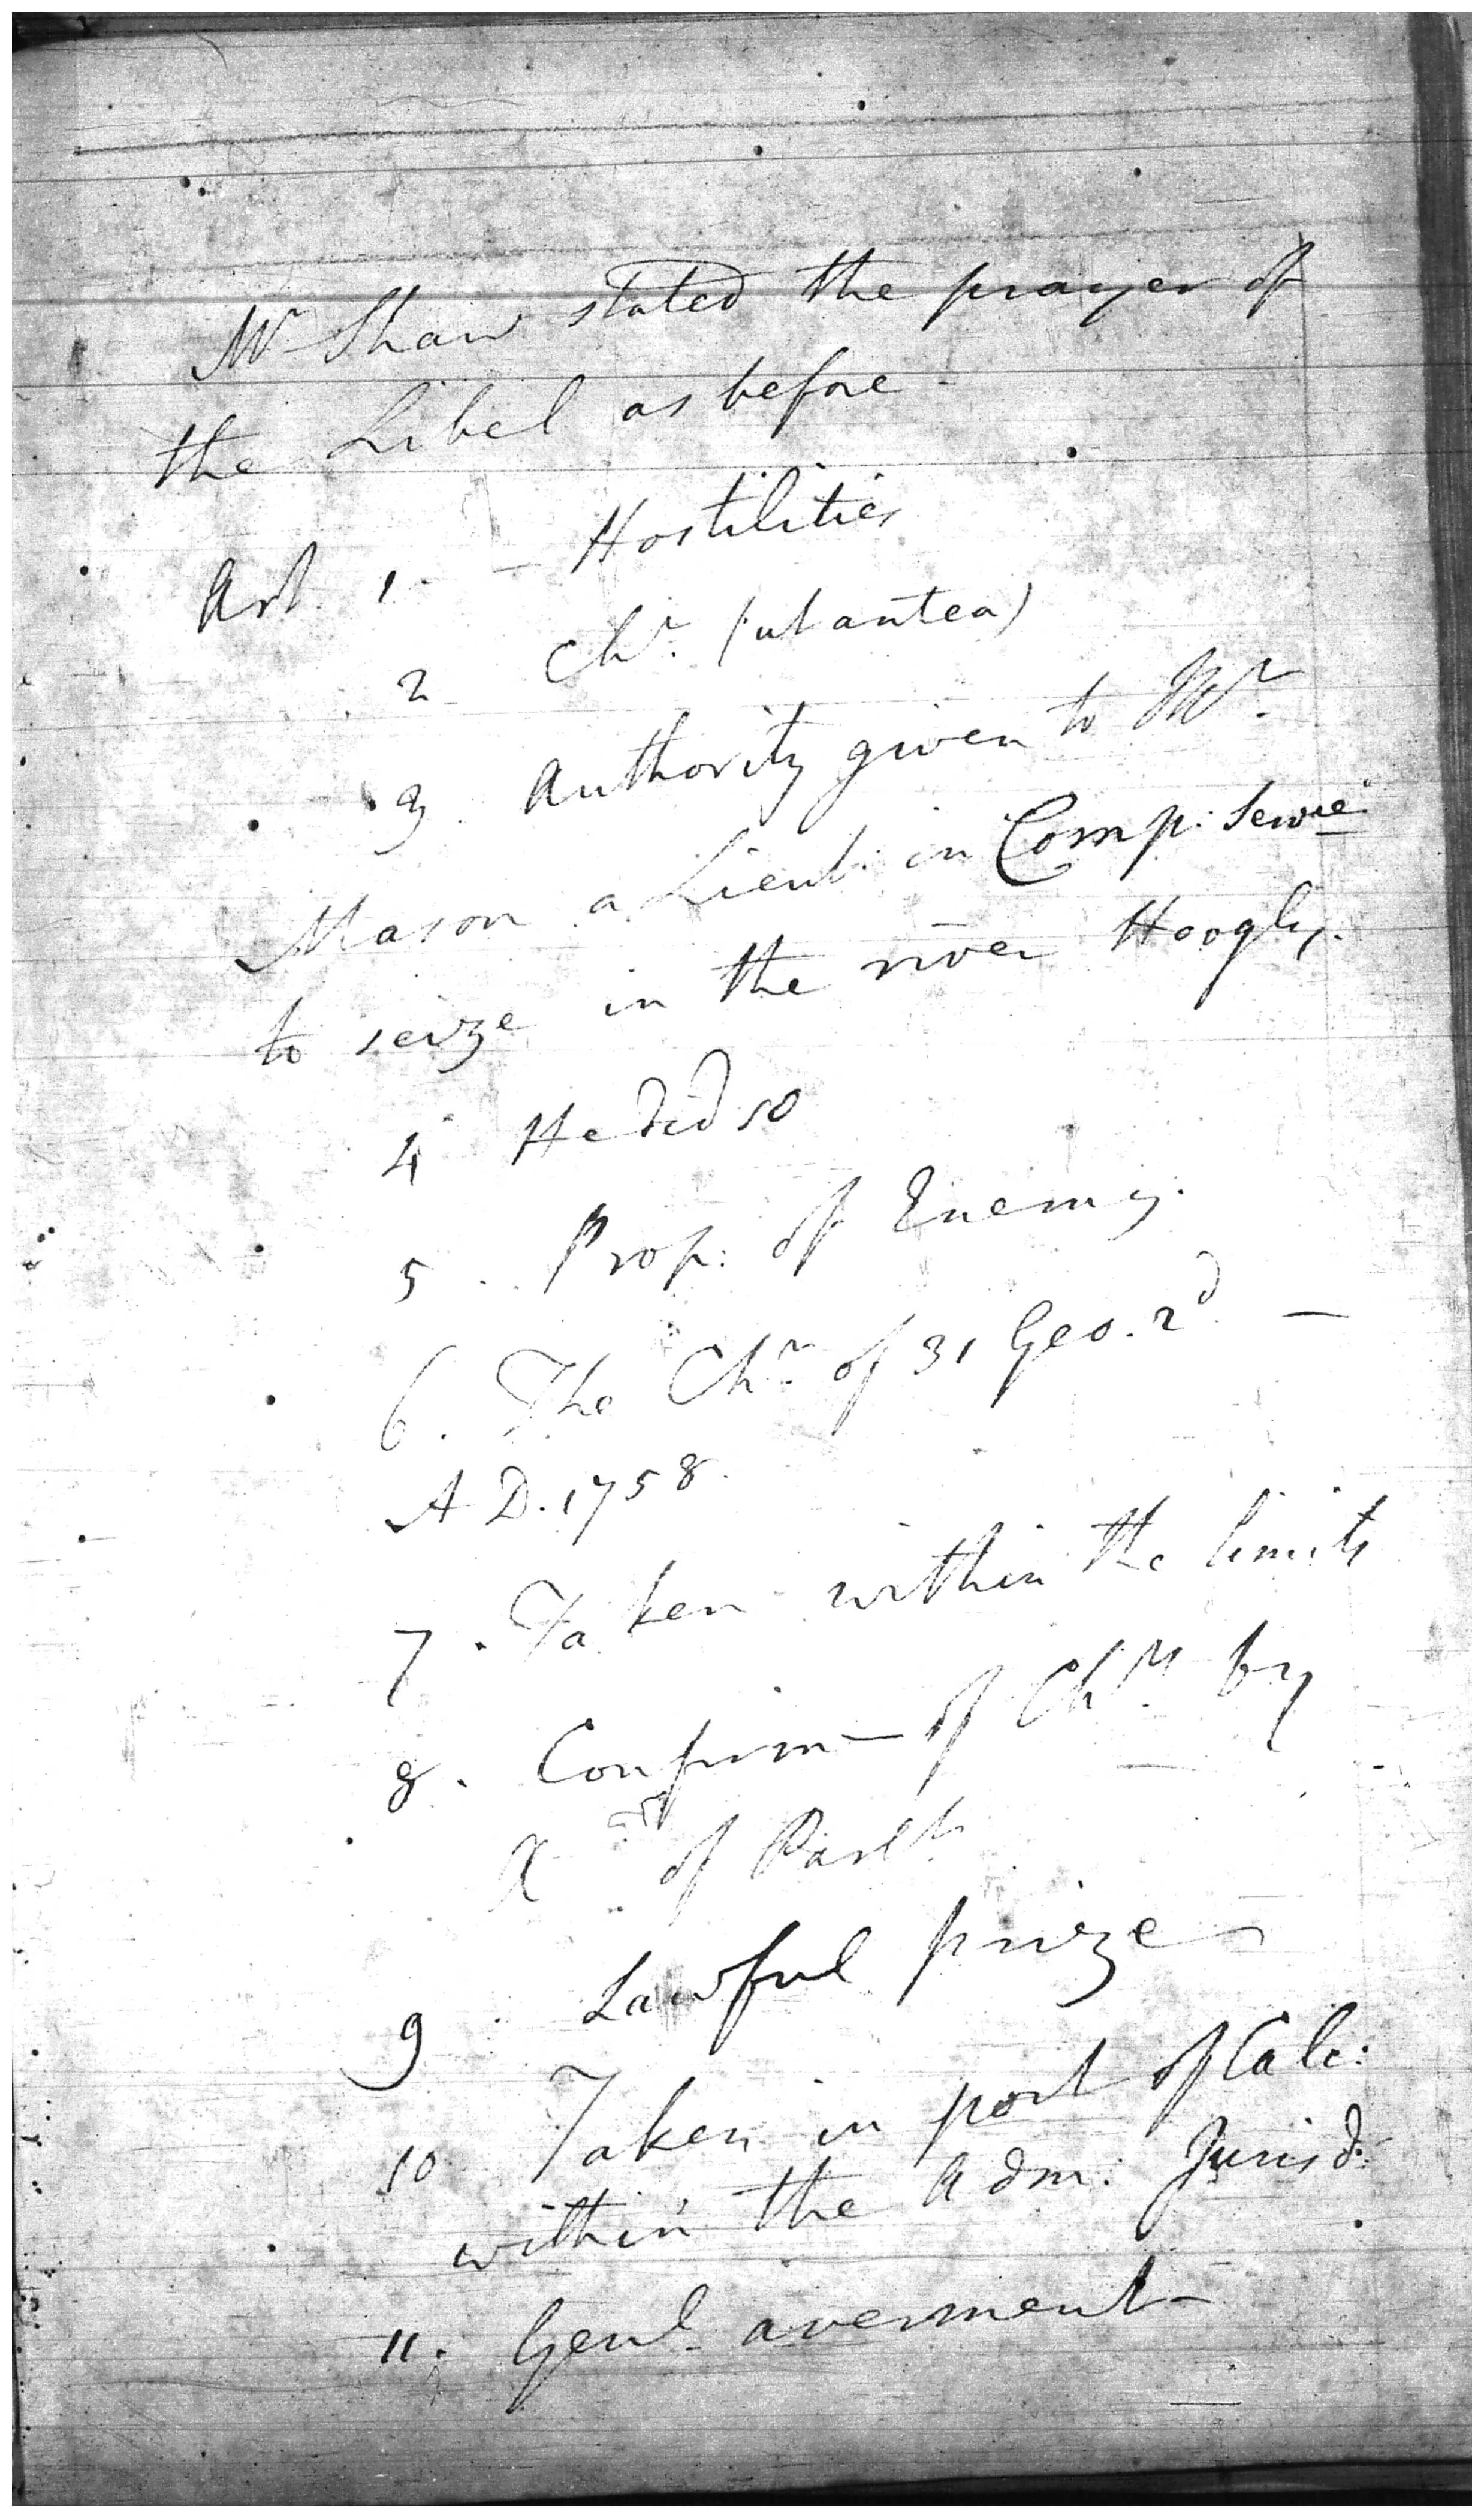 Mr Shaw stated the prayer of
the Libel as before -
Art. 1 - - Hostilities
2 Chr. (ut antea)
3 Authority given to Mr.
Mason a Lieut: in Comp: Servce
to seize in the river Hoogly.
4 He did so
5. Prop: of Enemy.
6. The Chr. of 31 Geo. 2d. -
A D. 1758.
7. Taken within the limits
8. Confirm- of Chrs by
of Parlt.
9. Lawful prize -
10 Taken in port of Calc:
within the Adm: Jurisd:
11. Genl. averment -